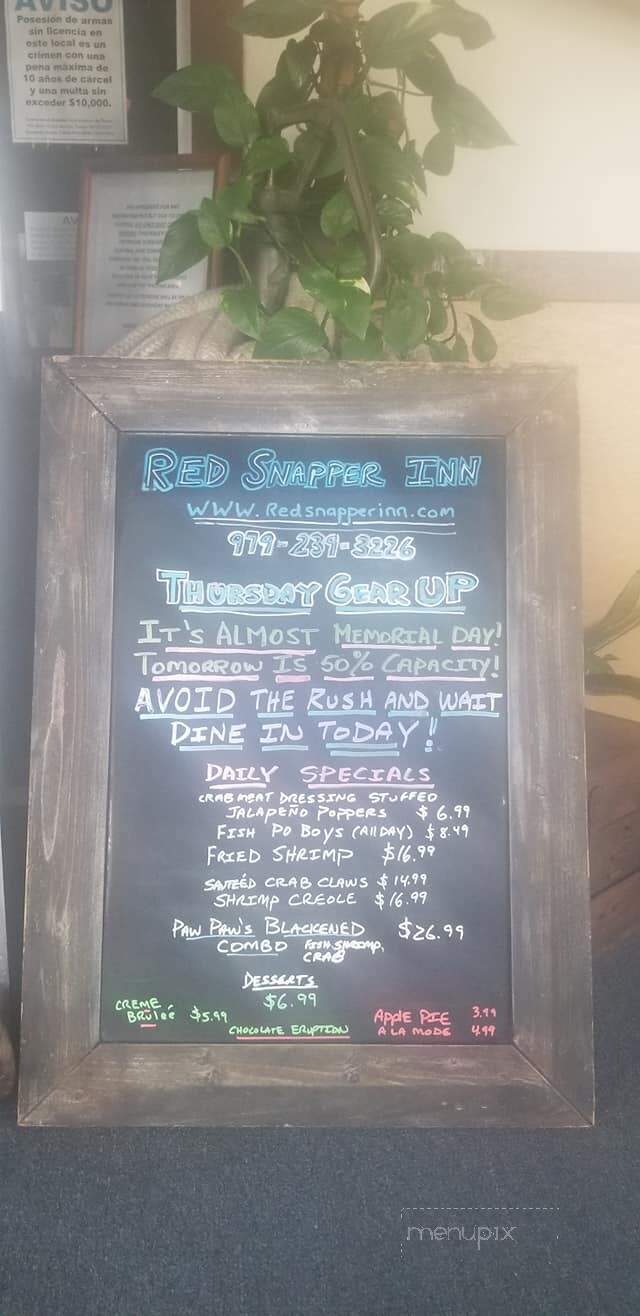 AVISO
Posesión de armas
sin licencia en
este local es un
crimen con una
pena máxima de
10 años de cárcel
y una multa sin
exceder $10,000.
AV
RED SNAPPER INN
WWW.Redsnapperinn.com
979-239-3226
THURSDAY GEAR UP
IT'S ALMOST MEMORIAL DAY!
TOMORROW IS 50% CAPACITY!
AVOID THE RUSH AND WAIT
DINE IN TODAY!
DAILY SPECIALS
CRABMEAT DRESSING STUFFED
JALAPEÑO POPPERS $6.99
FISH PO BOYS (All DAY) $8.49
FRIED SHRIMP $16.99
SAUTEÉD CRAB CLAWS $14.99
SHRIMP CREOLE $16.99
PAW PAW'S BLACKENED $26.99
COMBO FISH, SHRIMP,
CRAB
DESSERTS
$6.99
CREME
BRuleé $5.99
CHOCOLATE ERUPTION
APPlE PIE 3.99
A LA MODE 4.99
menupix